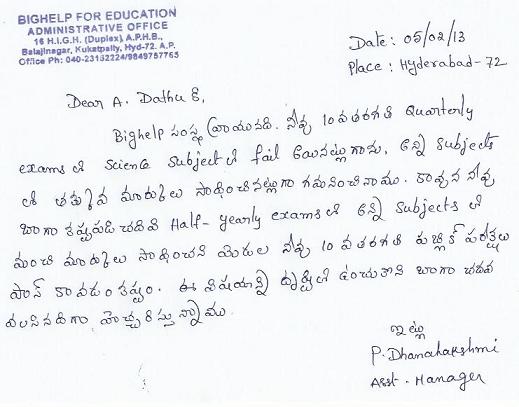 BIGHELP FOR EDUCATION
ADMINISTRATIVE OFFICE
16 H.I.G.H. (Duplex), A.P.H.B.,
Balajinagar, Kukatpally, Hyd-72. A.P.
Office Ph: 040-23152224/9849757765
Date: 05/02/13
Place: Hyderabad-72
Dear A. Dathu కి,
Bighelp సంస్థ వ్రాయునది. నీవు 10 వ తరగతి Quarterly
exams లో Science Subject లో fail అయినట్లుగాను, అన్ని Subjects
లో తక్కువ మార్కులు సాధించినట్లుగా గమనించినాము. కావున నీవు
బాగా కష్టపడి చదివి Half-yearly exams లో అన్ని Subjects లో
మంచి మార్కులు సాధించని యెడల నీవు 10 వ తరగతి పబ్లిక్ పరీక్షలు
పాస్ కావడం కష్టం. ఈ విషయాన్ని దృష్టిలో ఉంచుకొని బాగా చదవ
వలసినదిగా హెచ్చరిస్తున్నాము.
ఇట్లు
P. Dhanalakshmi
Asst. Manager